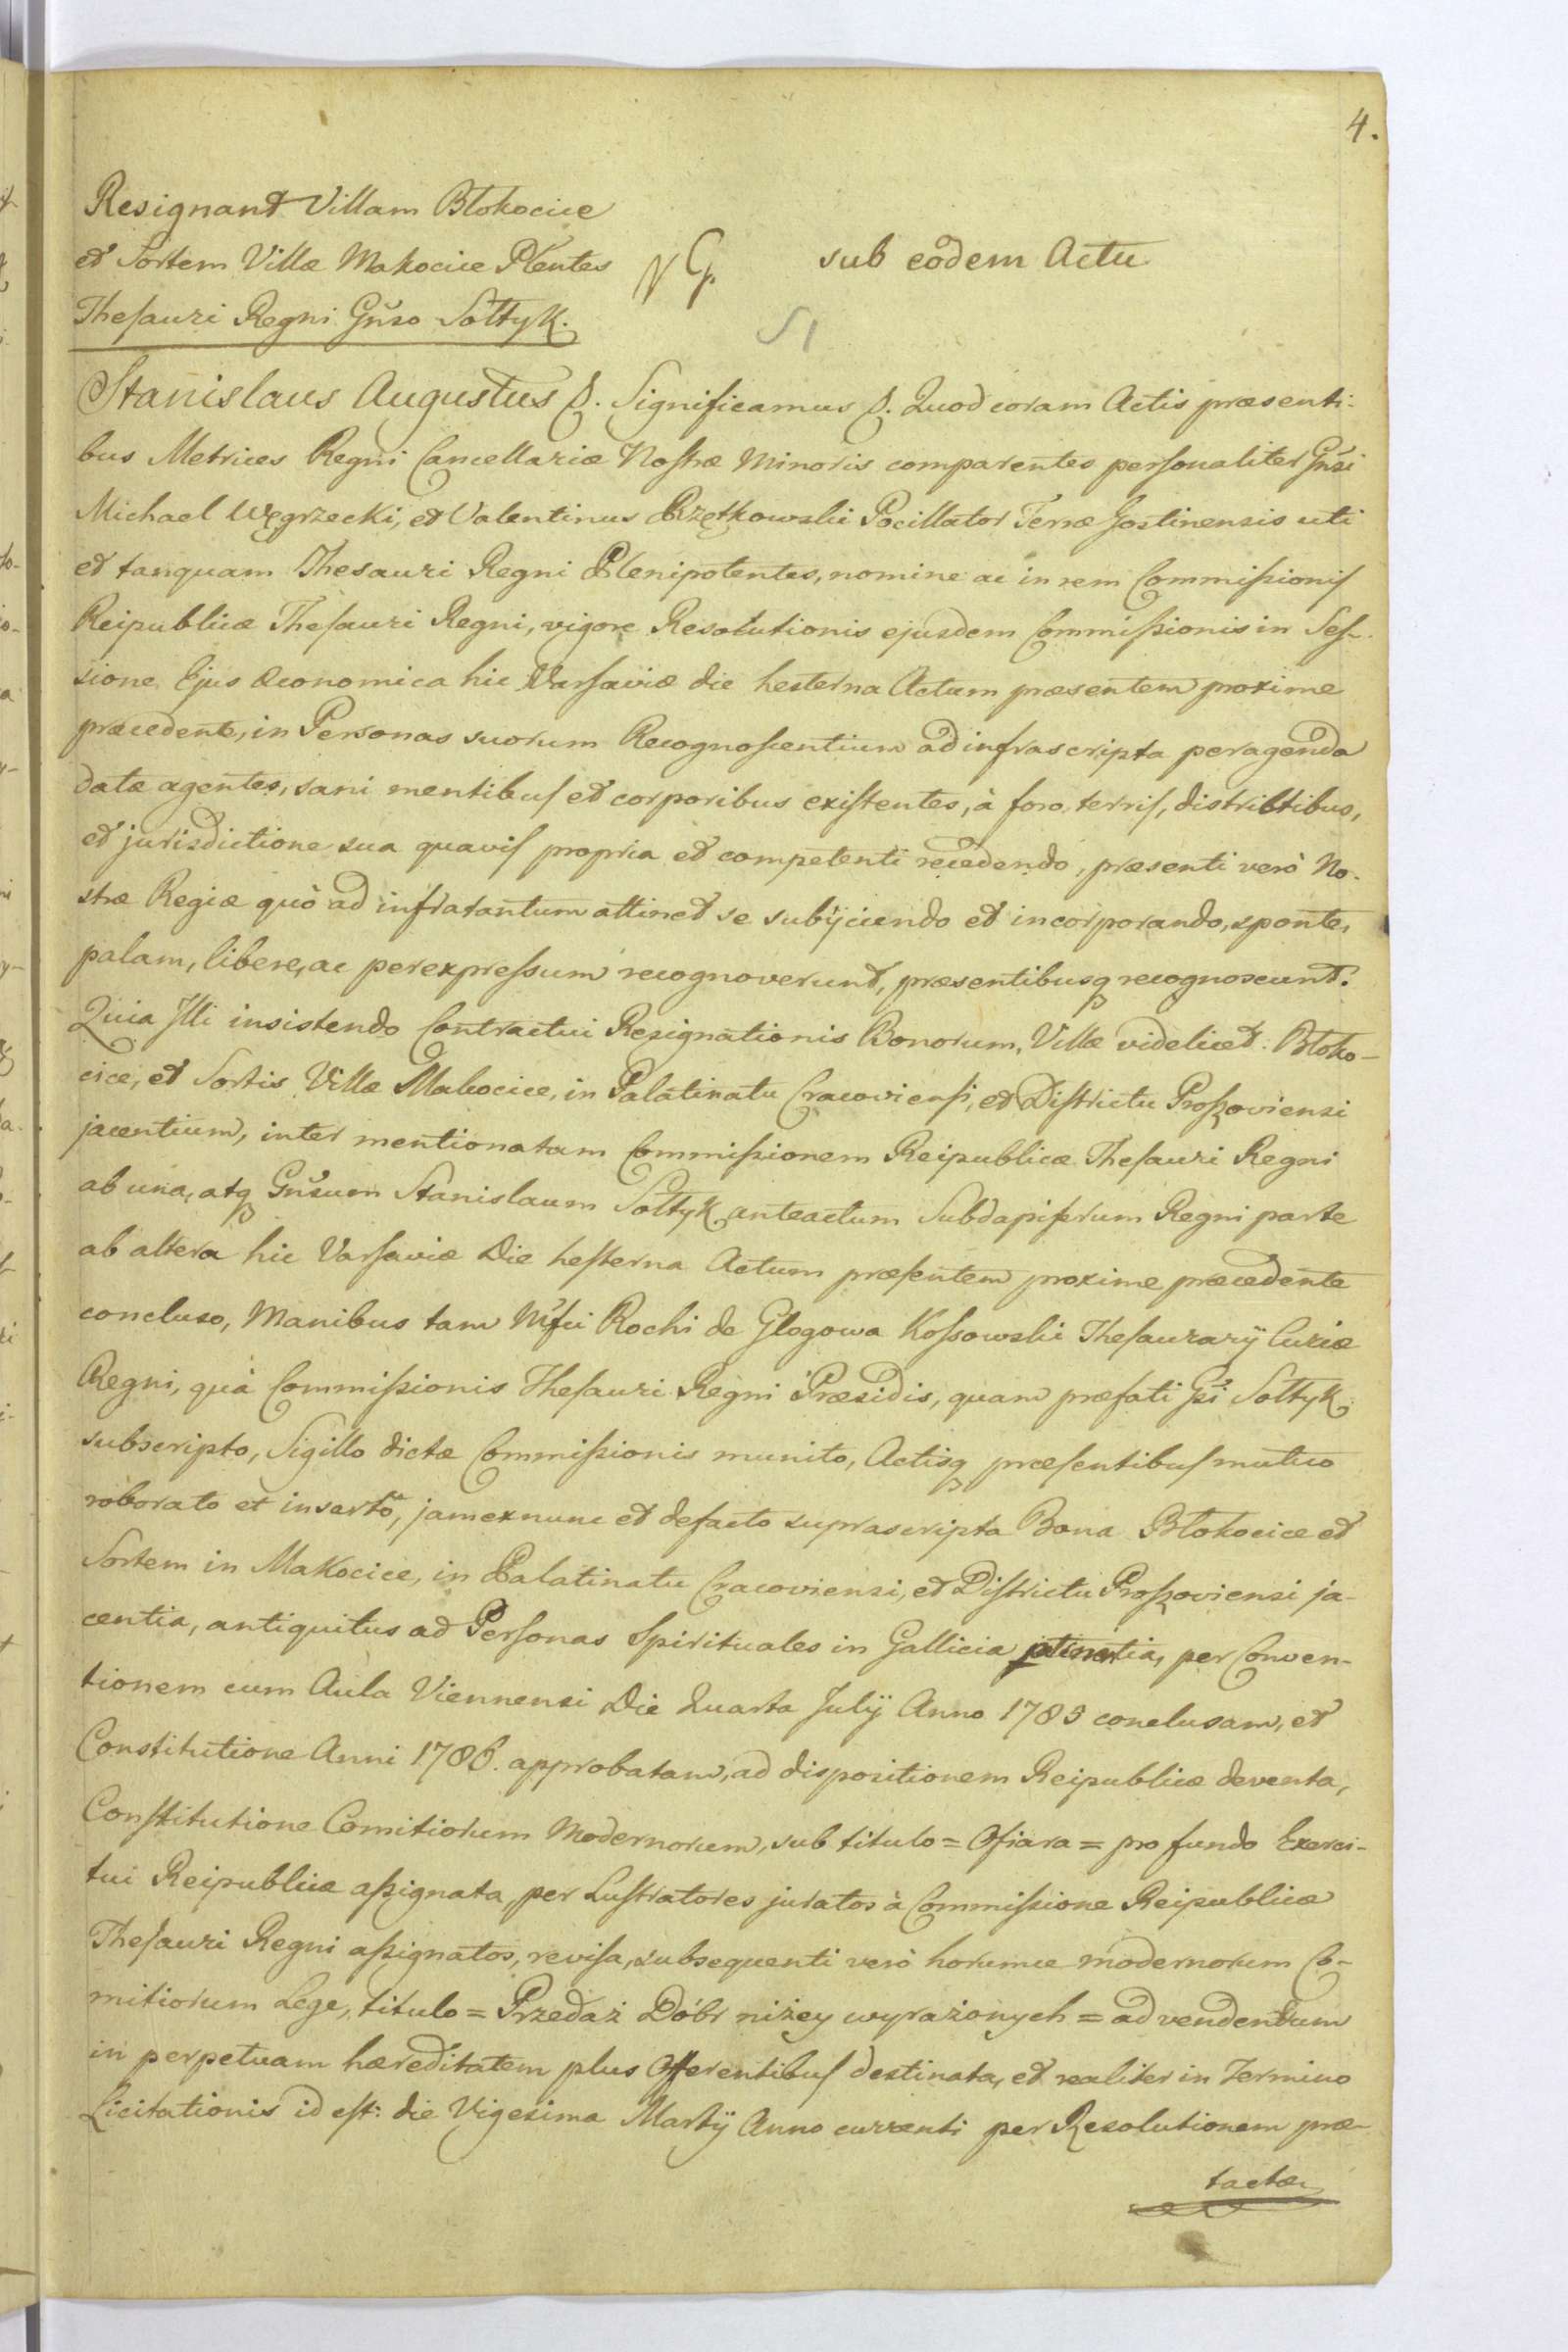 4.
Resignant Villam Błokocice
et Sortem Villæ Makocice Plentes
Thesauri Regni Gnso Sołtyk.
sub eodem Actu
51
Stanislaus Augustus &. Significamus &. Quod coram Actis præsenti-
bus Metrices Regni Cancellariæ Nostræ Minoris comparentes personaliter Gnsi
Michael Węgrzecki, et Valentinus Rzętkowski Pocillator Terræ Gostinensis uti
et tanquam Thesauri Regni Plenipotentes, nomine ac in rem Commissionis
Reipublicæ Thesauri Regni, vigore Resolutionis ejusdem Commissionis in Ses-
sione Ejus Œconomica hic Varsaviæ die hesterna Actum præsentem proxime
præcedente, in Personas suorum Recognoscentium ad infrascripta peragenda
datæ agentes, sani mentibus et corporibus existentes, à foro, terris, districtibus,
et jurisdictione sua quavis propria et competenti recedendo, præsenti verò No-
stræ Regiæ quò ad infratantum attinet se subijciendo et incorporando, sponte,
palam, libere, ac per expressum recognoverunt, præsentibusq recognoscunt:
Quia Illi insistendo Contractui Resignationis Bonorum, Villæ videlicet Błoko-
cice, et Sortis Villæ Makocice, in Palatinatu Cracoviensi, et Districtu Proszoviensi
jacentium, inter mentionatam Commissionem Reipublicæ Thesauri Regni
ab una, atq Gnsum Stanislaum Sołtyk anteactum Subdapiferum Regni parte
ab altera hic Varsaviæ Die hesterna Actum præsentem proxime præcedente
concluso, Manibus tam Mfci Rochi de Głogowa Kossowski Thesaurarij Curiæ
Regni, quà Commissionis Thesauri Regni Præsidis, quam præfati Gsi Sołtyk
subscripto, Sigillo dictæ Commissionis munito, Actisq præsentibus mutuo
roborato et inserto, jam ex nunc et de facto suprascripta Bona Błokocice et
Sortem in Makocice, in Palatinatu Cracoviensi, et Districtu Proszoviensi ja-
centia, antiquitus ad Personas Spirituales in Gallicia ptinentia, per Conven-
tionem cum Aula Viennensi Die Quarta Julij Anno 1785 conclusam, et
Constitutione Anni 1786. approbatam, ad dispositionem Reipublicæ deventa,
Constitutione Comitiorum Modernorum, sub titulo = Ofiara = pro fundo Exerci-
tui Reipublicæ assignata, per Lustratores juratos à Commissione Reipublicæ
Thesauri Regni assignatos, revisa, subsequenti verò horumce modernorum Co-
mitiorum Lege, titulo = Przedaż Dóbr niżey wyrażonych = ad vendendum
in perpetuam hæreditatem plus Offerentibus destinata, et realiter in Termino
Licitationis id est: die Vigesima Martij Anno currenti per Resolutionem præ-
tactæ